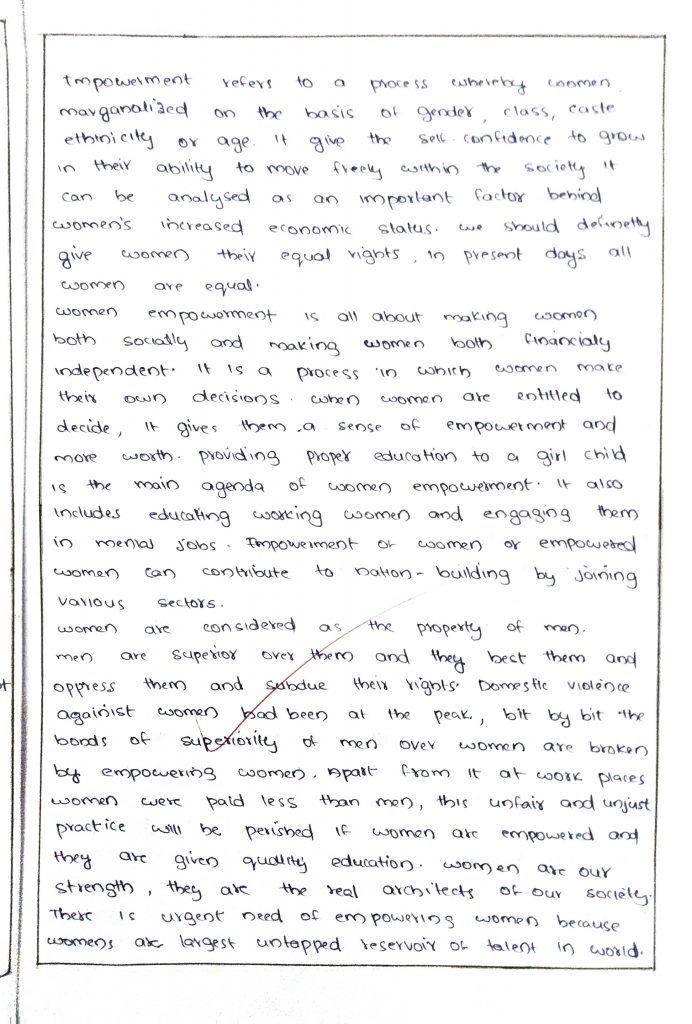 Impowerment refers to a process whereby women
marganalized on the basis of gender, class, caste
ethinicity or age. It give the self-confidence to grow
in their ability to move freely within the society It
can be analysed as an important factor behind
women's increased economic status. we should definetly
give women their equal rights, in present days all
women are equal.
women empowerment is all about making women
both socially and making women both financialy
independent. It is a process in which women make
their own decisions. when women are entitled to
decide, it gives them a sense of empowerment and
more worth. providing proper education to a girl child
is the main agenda of women empowerment. It also
includes educating working women and engaging them
in menial jobs. Impowerment of women or empowered
women can contribute to nation-building by joining
various sectors.
women are considered as the property of men.
men are superior over them and they best them and
oppress them and subdue their rights. Domestic violence
againist women had been at the peak, bit by bit the
bonds of superiority of men over women are broken
by empowering women. Apart from it at work places
women were paid less than men, this unfair and unjust
practice will be perished if women are empowered and
they are given quality education. women are our
strength, they are the real architects of our society.
There is urgent need of empowering women because
womens are largest untapped reservoir of talent in world.